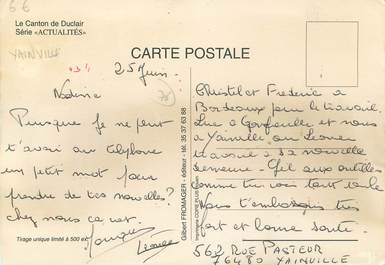 6€
Le Canton de Duclair
Série «ACTUALITÉS»
YAINVILLE
CARTE POSTALE
25 Juin.
Nadine
Puisque je ne peut
t'avoir au téléphone
un petit mot pour
prendre de tes nouvelles?
chez nous ca va.
Tirage unique limité à 500 ex
Gilbert FROMAGER - éditeur - tél. 35 37 63 88
Christel et Frederic a
Bordeaux pour le travail.
Luc a Gonfreville et nous
a Yainville, ou
travail a sa nouvelle
comme tu vois tout roule
Nous t'embrassons tres
fort et bonne santé.
562 RUE PASTEUR
76480 YAINVILLE